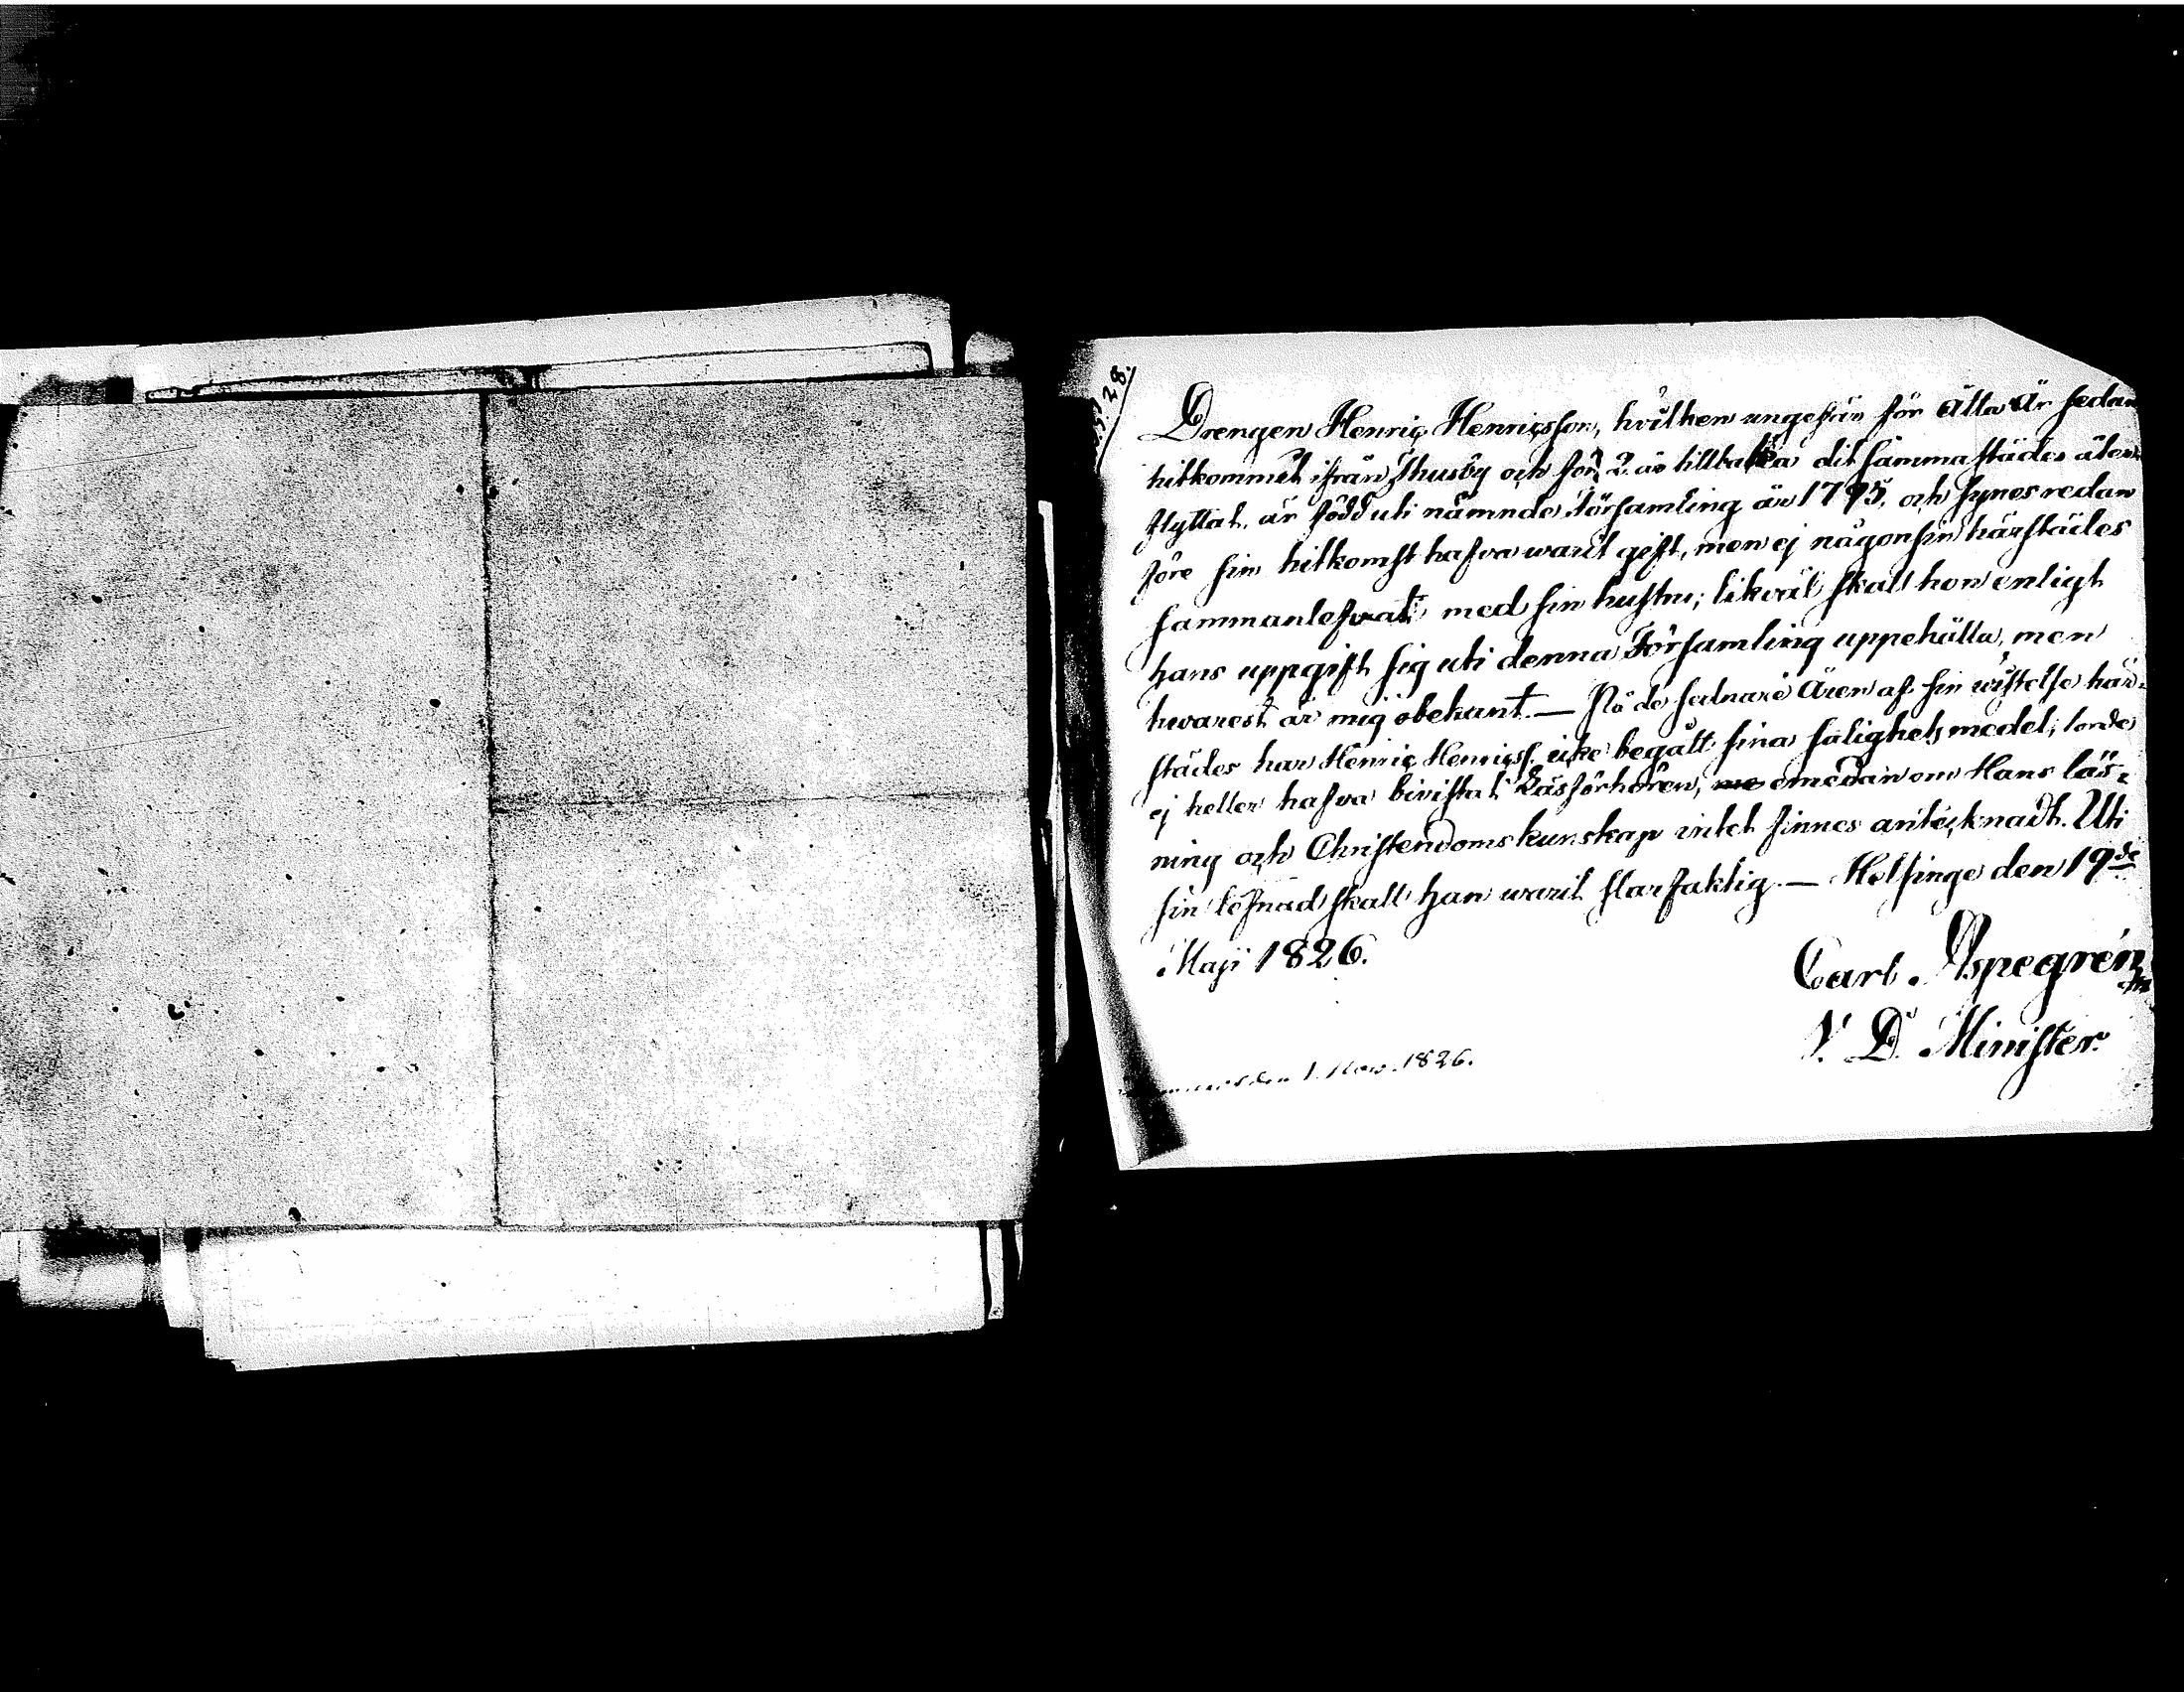 28.
Drengen Henric Henricsson, hvilken ungefär för åtta år sedan
hitkommit ifrån Thusby och för 2. år tillbakka dit sammastädes åter
flyttat, är född uti nämnde Församling år 1795, och synes redan
före sin hitkomst hafva warit gift, men ej någonsin härstädes
sammanlefvat med sin hustru; likväl skall hon enligt
hans uppgift sig uti denna Församling uppehålla, men
hwarest är mig obekant. — På de sednare Åren af sin wistelse här-
städes har Henric Henricss. icke begått sina salighets medel; torde
ej heller hafva bivistat Läsförhören, emedan om Hans läs-
ning och Christendoms kunskap intet finnes antecknadt. Uti
sin lefnad skall han warit slarfaktig. — Helsinge den 19de
Maji 1826.
Carl Aspegrén
V. D. Minister.
den 1. Nov. 1826.